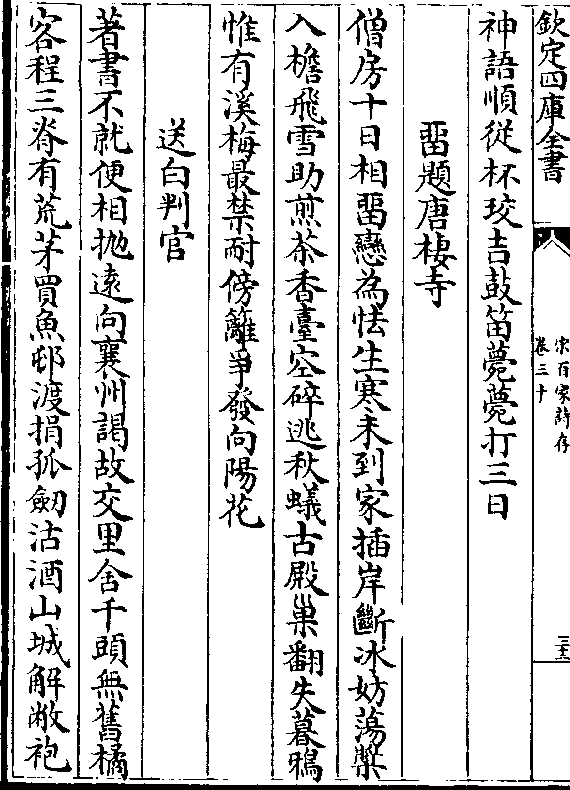 欽定四庫全書
宋百家詩存
卷三十
神語順從杯珓吉鼓笛薨薨打三日
畱題唐棲寺
僧房十日相畱戀為怯生寒未到家插岸斷冰妨蕩槳
入檐飛雪助煎茶香臺空碎逃秋蟻古殿巢翻失暮鴉
惟有溪梅最禁耐傍籬爭發向陽花
送白判官
著書不就便相拋遠向襄州謁故交里舍千頭無舊橘
客程三脊有荒茅買魚邨渡捐孤劒沽酒山城解敝袍